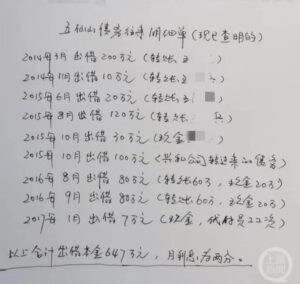 五仙山借资往来明细单(现已查明的)
2014年3月出借200万元(转账王
2014年11月出借10万元(转账王
2015年6月出借20万元(转账王
2015年8月出借120万元(转账王
2015年10月出借30万元(现金
2015年10月出借100万元(共和公司转过来的借资)
2016年8月出借80万元(转账60万,现金20万)
2016年9月出借80万元(转账60万,现金20万)
2017年1月出借7万元(现金,
以上合计出借本金647万元,月利息为两分。
上游新闻